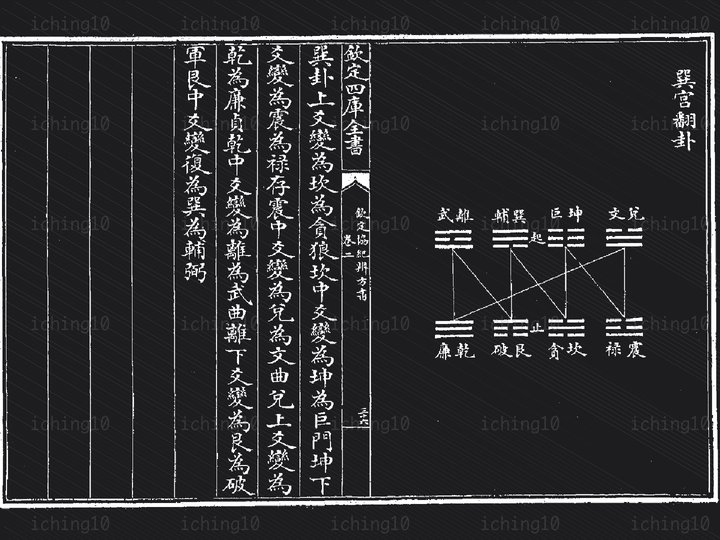 巽宮翻卦
兌文 坤巨 起 巽輔 離武
震禄 坎貪 止 艮破 乾廉
欽定四庫全書
欽定協紀辨方書
卷二
三十六
巽卦上爻變為坎為貪狼坎中爻變為坤為巨門坤下
爻變為震為禄存震中爻變為兌為文曲兌上爻變為
乾為廉貞乾中爻變為離為武曲離下爻變為艮為破
軍艮中爻變復為巽為輔弼
iching10